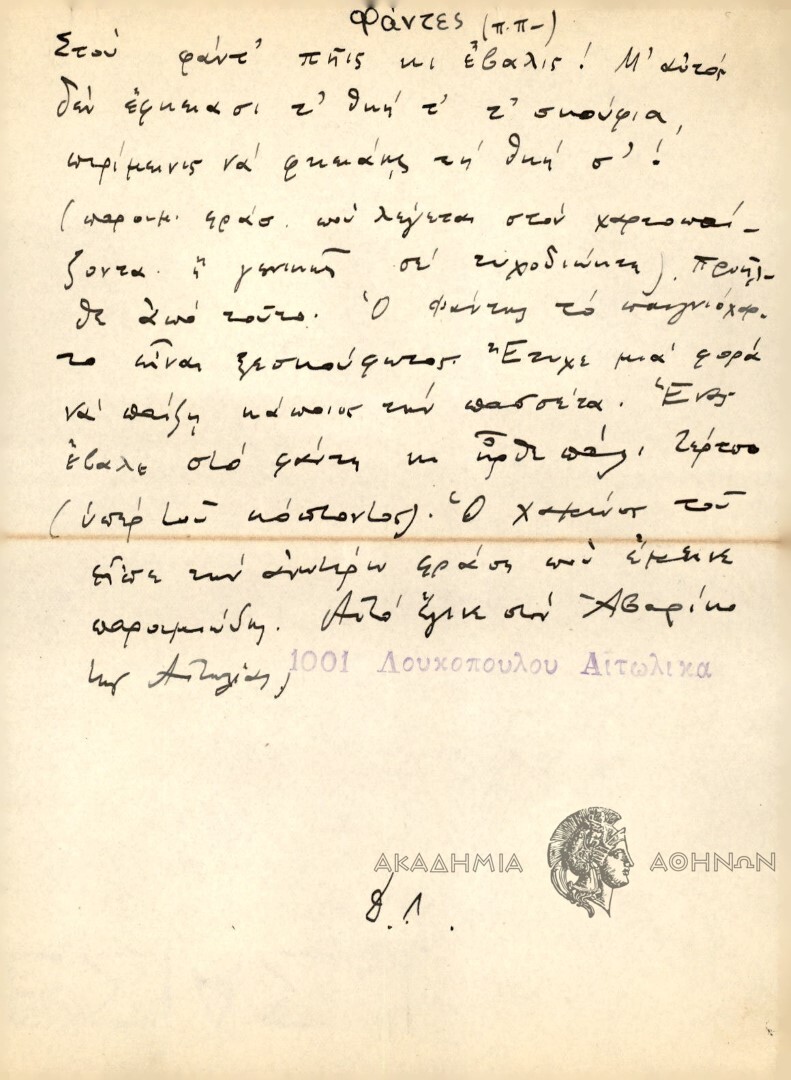 Φάντες (π.π-)
Στοῦ φάντ' πῆγις κι ἔβαλις! Μ' αὐτός
δέν ἔφκειασι τ' θκή τ' τ' σκούφια,
περίμεινις νά φκειάσῃ τή θκή σ'!
(παροιμ. φράσ. πού λέγεται στόν χαρτοπαί-
ζοντα ἤ γενικῶς σέ τυχοδιώκτη). Προῆλ-
θε ἀπό τοῦτο. Ὁ φάντης τό παιγνιόχαρ-
το εἶναι ξεσκούφωτος. Ἔτυχε μιά φορά
νά παίζῃ κάποιος τήν πασσέτα. Ἕνας
ἔβαλε στό φάντη κι ἦρθε πάλι τέρτσο
(ὑπέρ τοῦ κόπτοντος). Ὁ χαμένος τοῦ
εἶπε τήν ἀνωτέρω φράση πού ἔμεινε
παροιμιώδης. Αὐτό ἔγινε στόν Ἀβαρίκο
τῆς Αἰτωλίας,
1001 Λουκοπουλου Αἰτωλικα
ΑΚΑΔΗΜΙΑ ΑΘΗΝΩΝ
Δ. Λ.